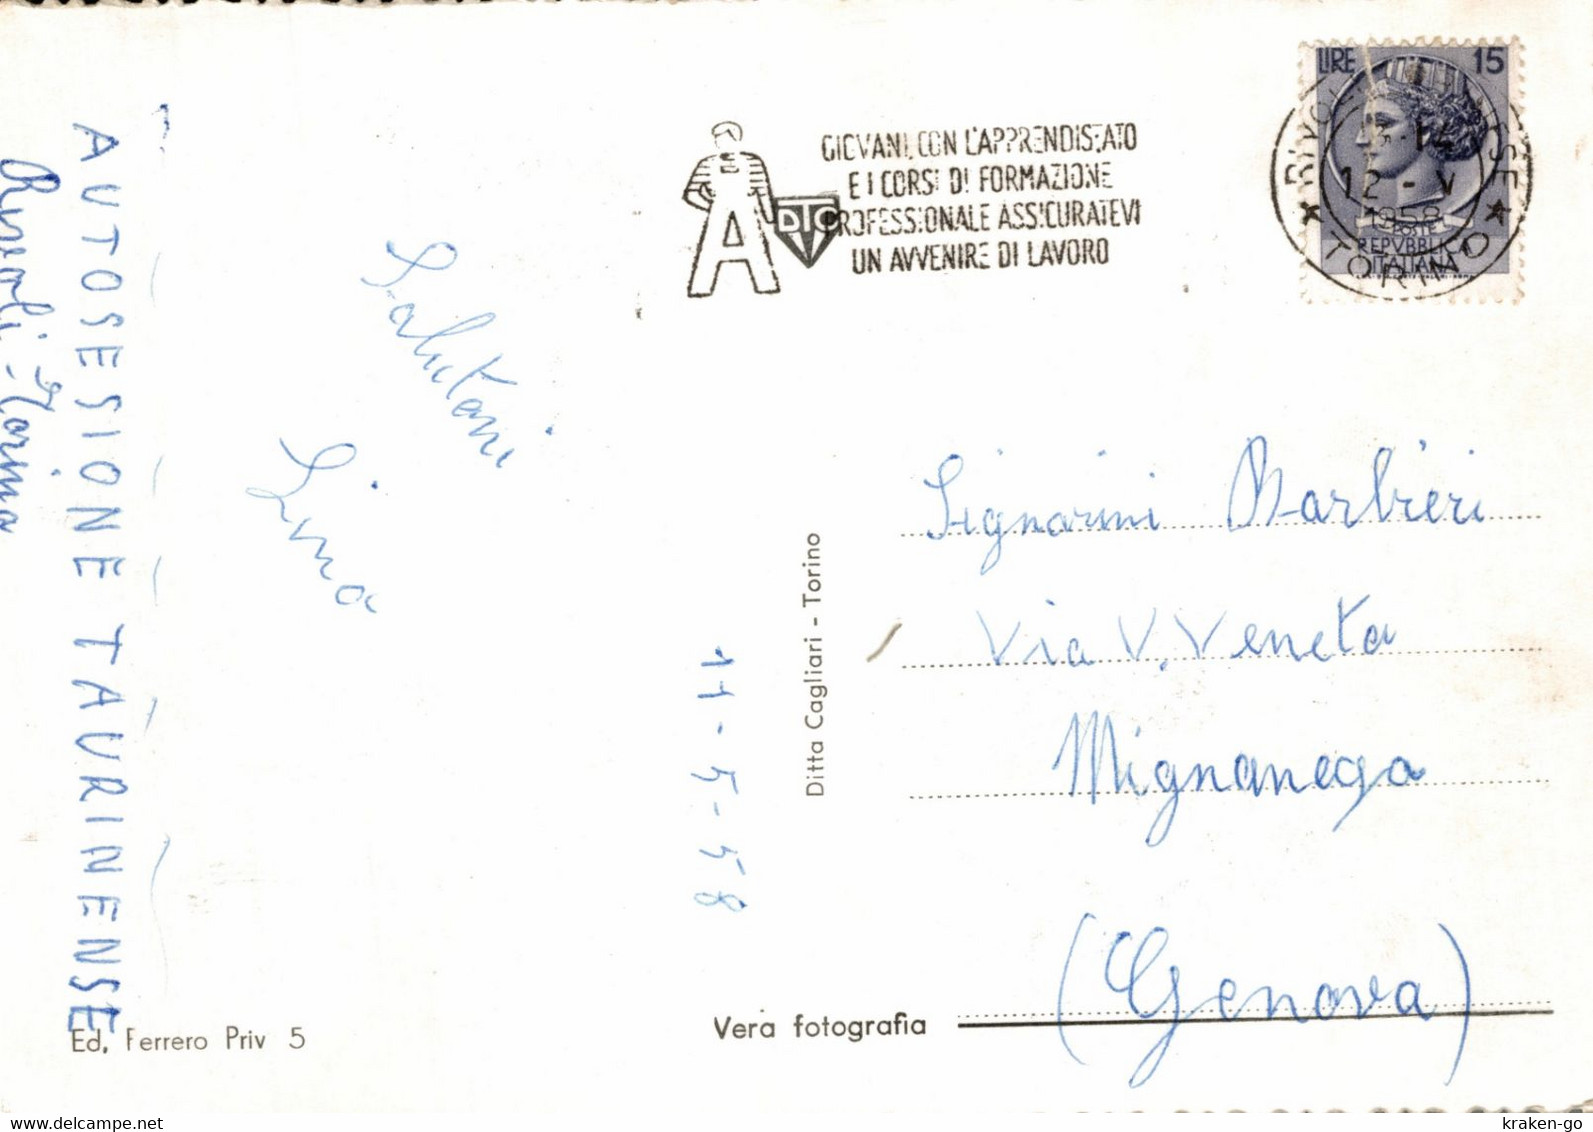 AUTOSESIONE TAURINENSE
Rivoli - Torino
Salutoni
Lina
11-5-58
GIOVANI, CON L'APPRENDISTATO
E I CORSI DI FORMAZIONE
PROFESSIONALE ASSICURATEVI
UN AVVENIRE DI LAVORO
A
DTC
LIRE 15
POSTE
REPVBBLICA
ITALIANA
12 - V
1958
TORINO
Signorini Barbieri
Via V. Veneto
Mignanego
(Genova)
Ditta Cagliari - Torino
Ed. Ferrero Priv 5
Vera fotografia
www.delcampe.net
kraken-go